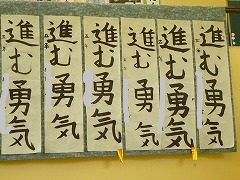 進む勇気
進む勇気
進む勇気
進む勇気
進む勇気
進む勇気